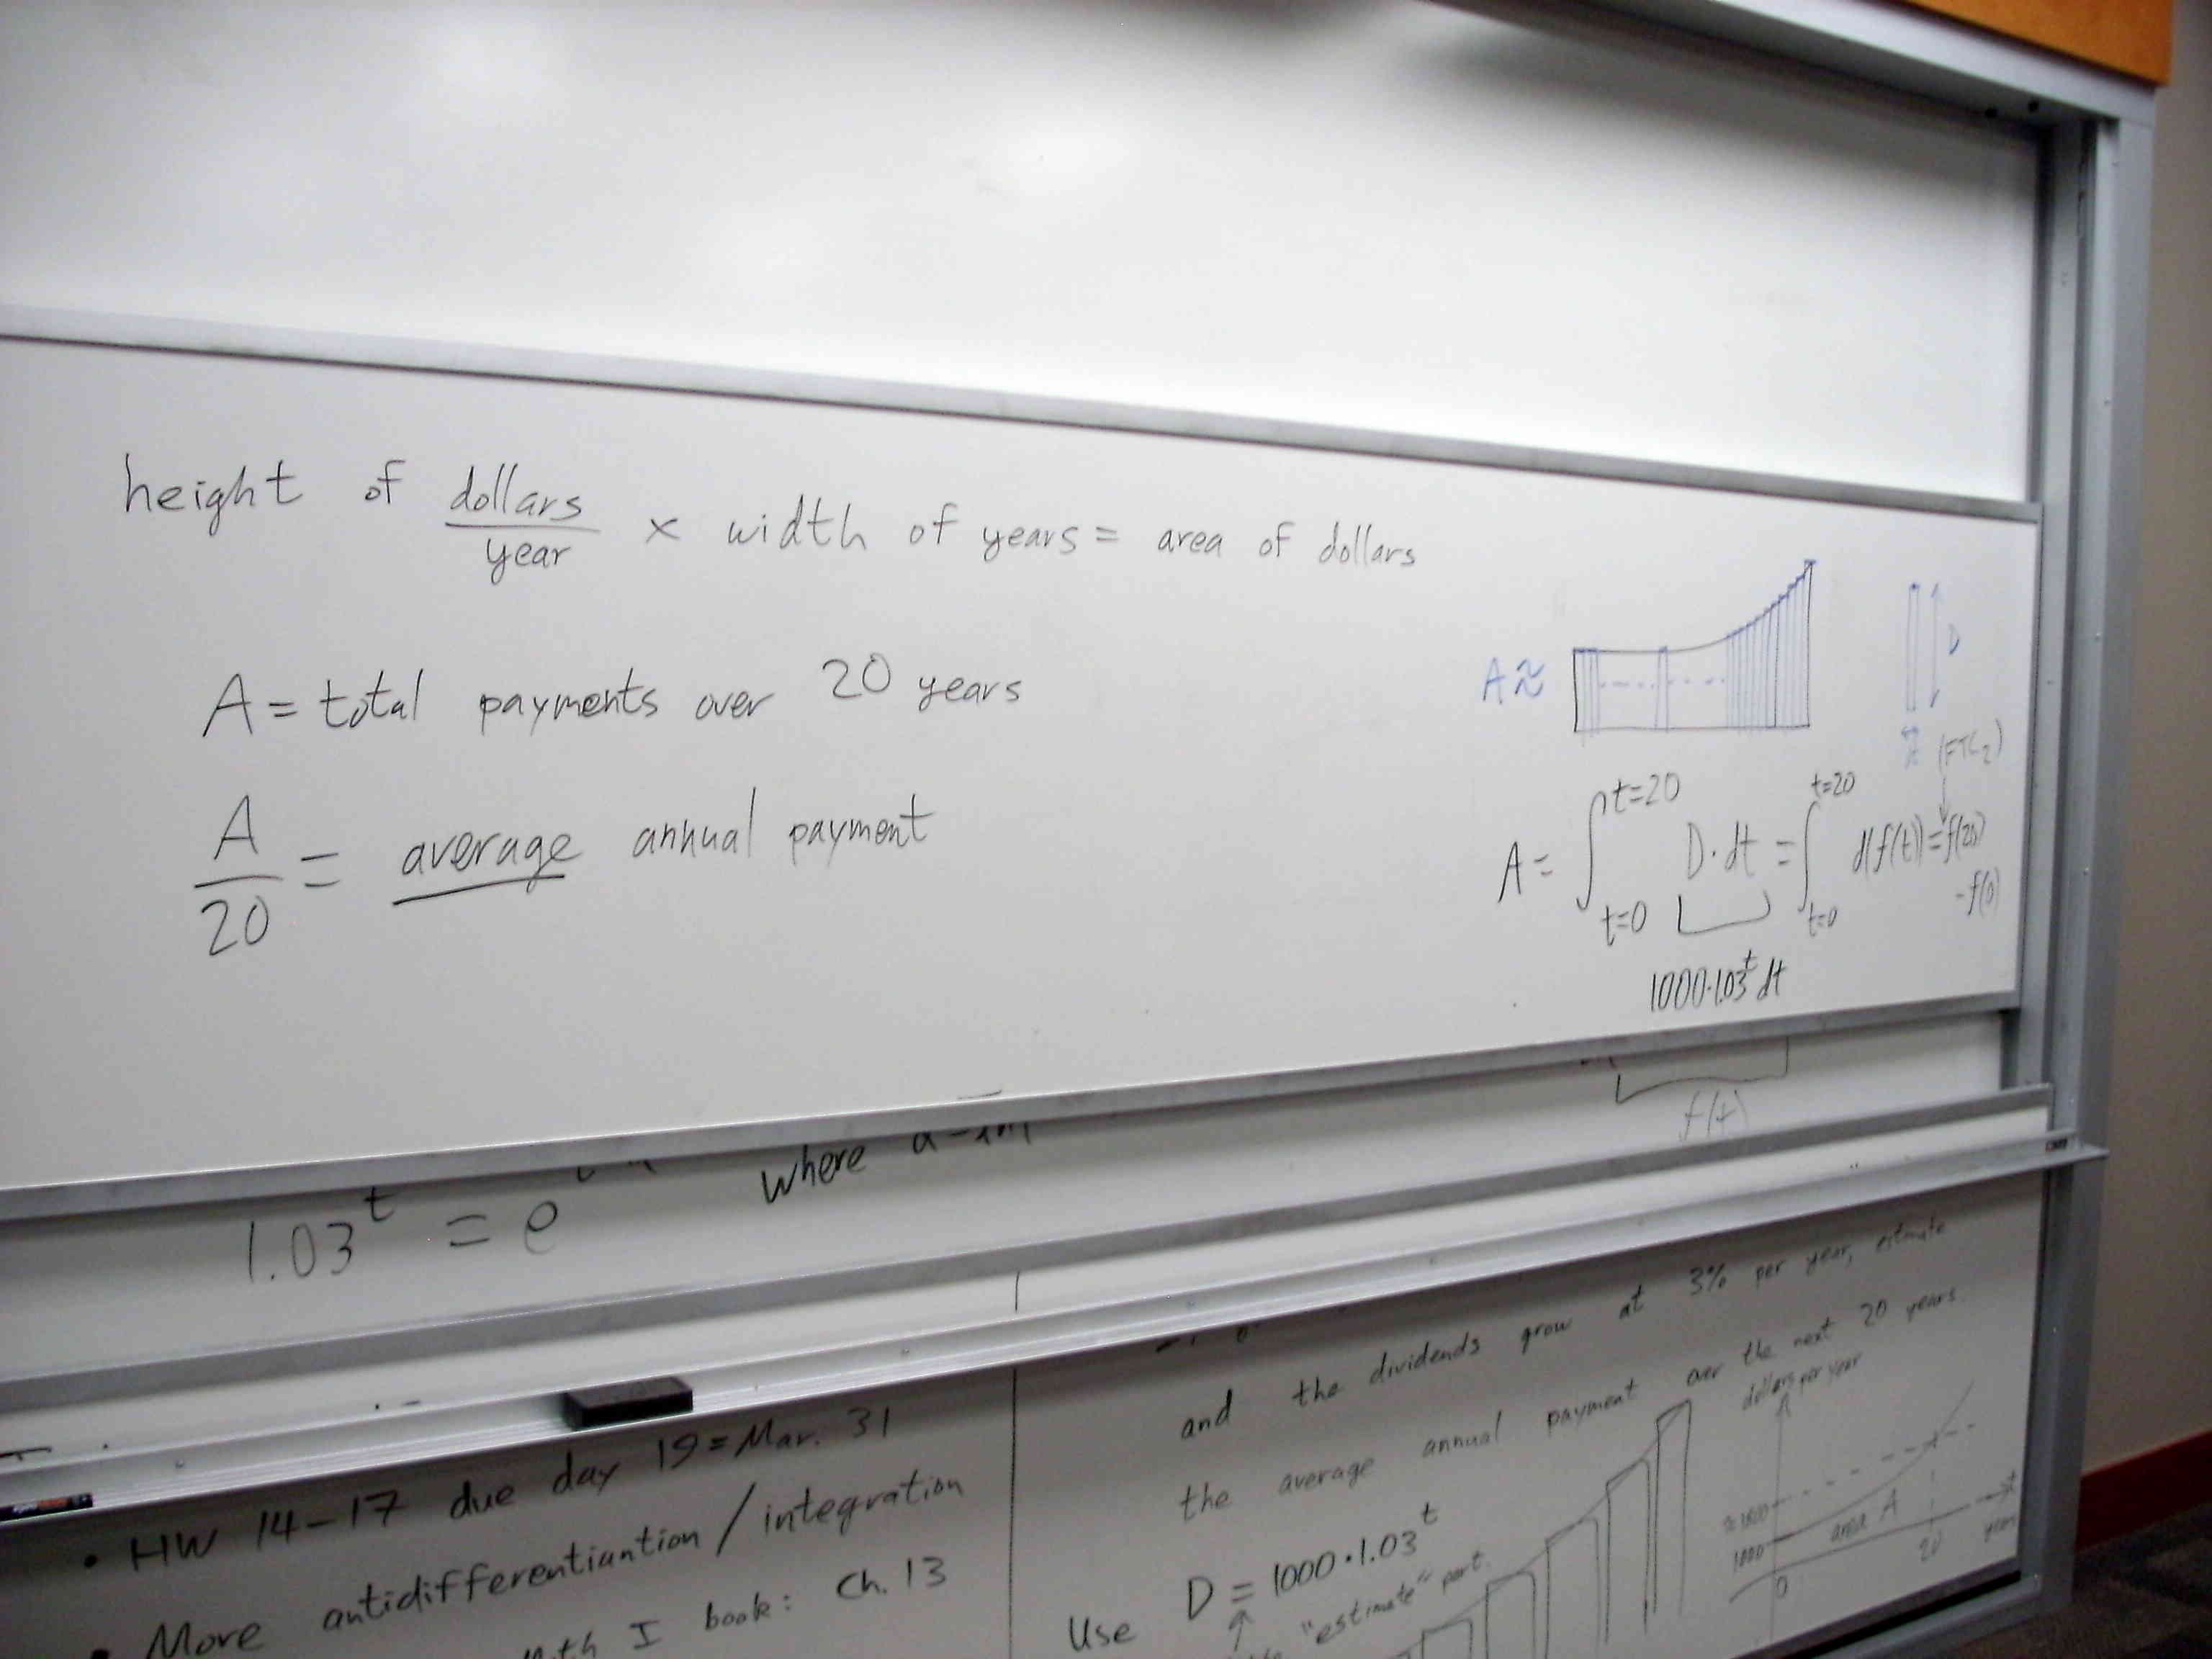 height of dollars/year × width of years = area of dollars
A = total payments over 20 years
A/20 = average annual payment
A ≈
D
(FTC₂)
A = ∫_{t=0}^{t=20} D·dt = ∫_{t=0}^{t=20} d(f(t)) = f(20) - f(0)
1000·1.03^t dt
f(t)
where
1.03^t = e
and the dividends grow at 3% per year, estimate
the average annual payment over the next 20 years
Use D = 1000·1.03^t
"estimate" part.
dollars per year
1000
area A
0
20
years
• HW 14-17 due day 19 = Mar. 31
• More antidifferentiantion / integration
I book: Ch. 13